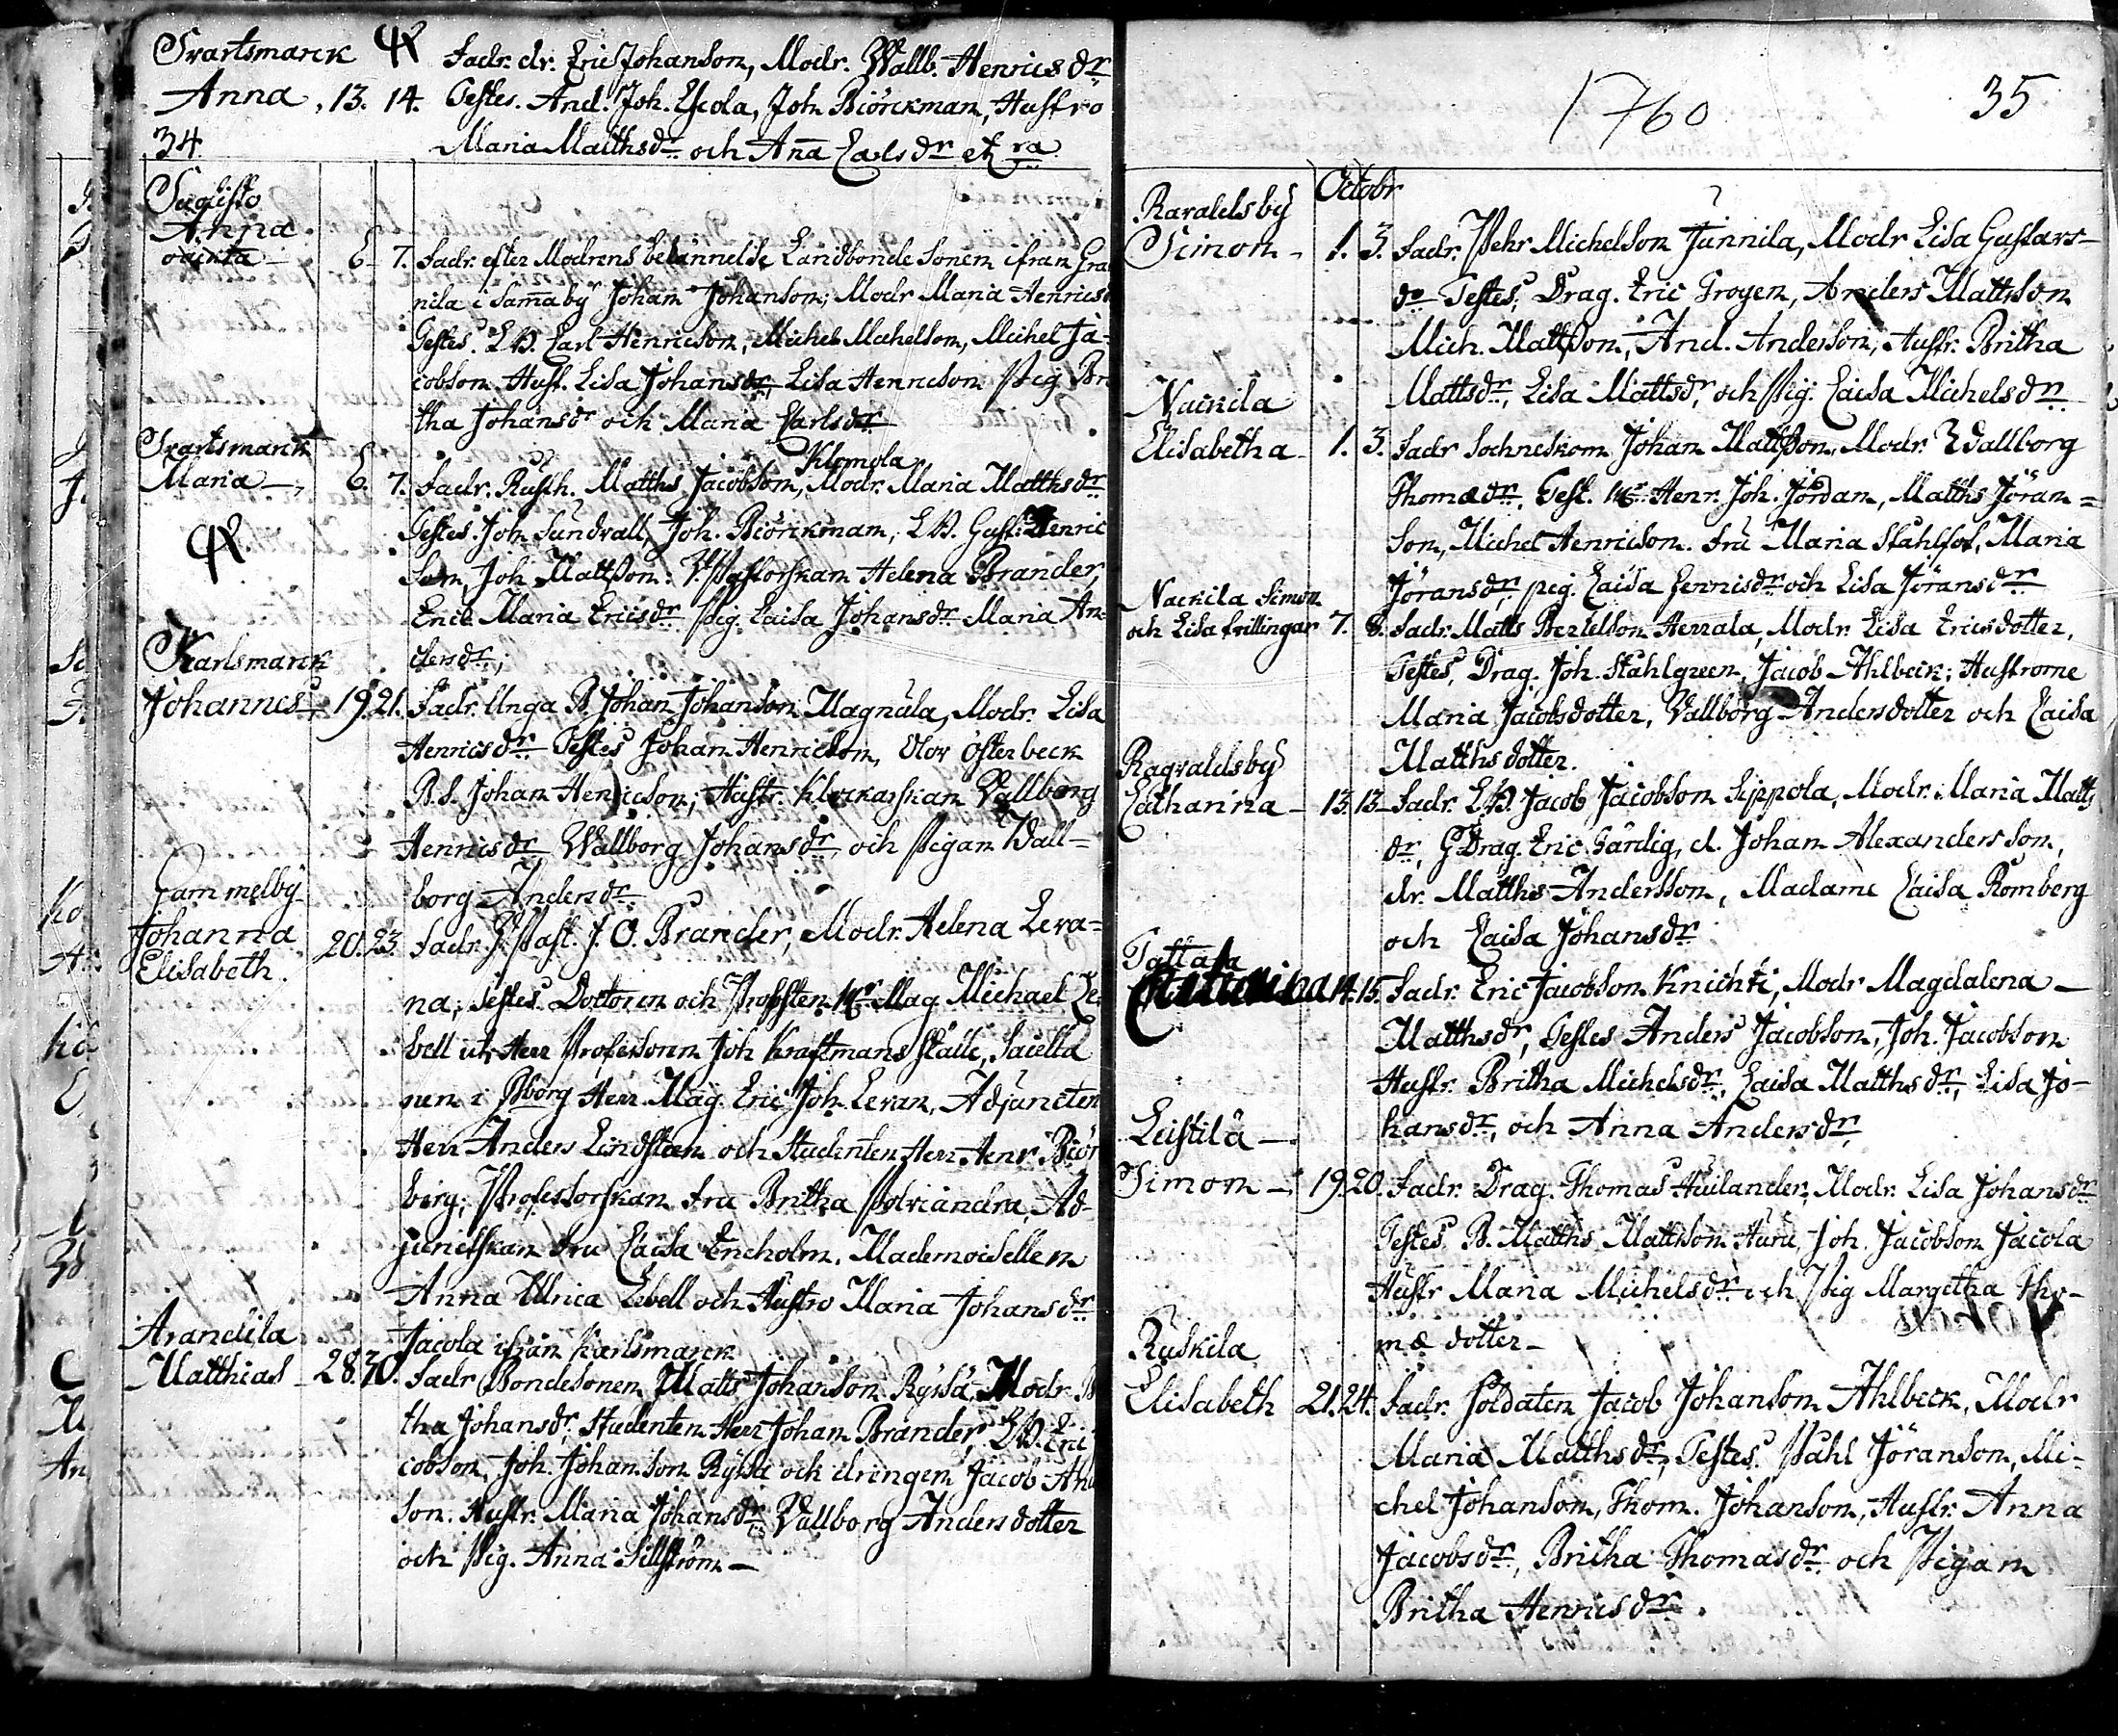 Svartsmarck Fadr. dr. Eric Johanson, Modr. Wallb. Henrics dr
Anna, 13. 14. Testes. And. Joh. Joh Biörckman, Hustro
34 Maria Matthsdr och Aña Carlsdr et ra
SuGisto
Anna
6 7. Fadr. efter Modrens bekännelse Landbonde Sonen ifran Gra
nila i Samaby Johan Johanson; Modr Maria Henrics
Testes. LB. Carl Henricson, Michel Michelson, Michel Ja-
cobson. Hust. Lisa Johansdr, Lisa Henricson Pig Br
tha Johansdr och Maria Carlsdr
Svartsmarck Klemola
Maria 6. 7. Fadr. Rusth. Matths Jacobson, Modr. Maria Matthsdr
Testes. Joh Sundvall, Joh. Biörckman, LB. Gust. Henric
Son, Joh Mattson. V.Pastorskan Helena Brander,
Eric Maria Ericsdr Pig. Caisa Johansdr Maria An
Karlsmarck dersdr;
Johannes 19. 21. Fadr. Unga B Johan Johanson Magnula, Modr. Lisa
Henricsdr Testes Johan Henricson, Olov Österbeck
B.S. Johan Henricson; Hustr. Klockarskan Vallborg
Henricsdr Wallborg Johansdr och Pigan Wall=
Gammelby borg Andersdr
Johanna 20. 23. Fadr. V.Past. J. O. Brander, Modr. Helena Leva=
Elisabeth. na; Testes. Doctoren och Prosten Hr Mag. Michael Le
bell ut Herr Professoren Joh Kraftmans ställe, Sacella
nen i Borg Herr Mag. Eric Joh. Levan, Adjuncten
Herr Anders Lindsteen och Studenten Herr Henr. Biör
berg; Professorskan Fru Britha Polviandra, Ad-
juncfskan Fru Caisa Encholm. Mademoisellen
Anna Ulrica Lebell och Hustro Maria Johansdr
Arancila Jacola ifrån Karlsmarck
Matthias 28. 30. Fadr Bondesonen Matts Johanson Ryssä Modr. B
tha Johansdr, Studenten Herr Johan Brander, LB. Eric
cobson, Joh. Johanson Ryssä och drengen Jacob
son. Hustr. Maria Johansdr Vallborg Andersdotter
och Pig. Anna Sillström
1760 35
Octobr
Ravaldsby
Simon 1. 3. Fadr. Pehr Michelson Junnila, Modr Lisa Gustavs-
dr Testes, Drag. Eric Trogen, Anders Mattson
Mich. Mattson, And. Anderson; Hustr. Britha
Mattsdr, Lisa Mattsdr, och Pig. Caisa Michelsdr
Nackila
Elisabetha 1. 3. Fadr Sochneskom Johan Mattson, Modr. Wallborg
Thomædr. Test. Hr Henr. Joh. Jördan, Matths Jöran=
son, Michel Henricson. Fru Maria Stahlfot, Maria
Jöransdr, pig. Caisa Hennisdr och Lisa Jöransdr
Nackila Simon
och Lisa Trillingar 7. 8. Fadr. Matts Bertelson Herrala, Modr. Lisa Ericsdotter,
Testes, Drag. Joh. Stahlgreen, Jacob Ahlbeck; Hustrorne
Maria Jacobsdotter, Vallborg Andersdotter och Caisa
Ragvaldsby Matthsdotter.
Catharina 13. 13. Fadr. LB. Jacob Jacobson Sippola, Modr. Maria Matts
dr, G Drag. Eric Gardig, d. Johan Alexanderson,
dr. Matths Andersson, Madame Caisa Romberg
och Caisa Johansdr
Tattara
14. 15. Fadr. Eric Jacobson Knichti, Modr Magdalena
Matthsdr, Testes Anders Jacobson, Joh. Jacobson
Hustr. Britha Michelsdr, Caisa Matthsdr, Lisa Jo-
Leistila hansdr, och Anna Andersdr,
Simon 19. 20. Fadr. Drag. Thomas Huilander, Modr. Lisa Johansdr
Testes B. Matths Mattson Huru, Joh. Jacobson Jacola
Hustr Maria Michelsdr och Pig Margetha Tho-
Ruskila mæ dotter
Elisabeth 21. 24. Fadr. Soldaten Jacob Johanson Ahlbeck, Modr
Maria Matthsdr, Testes. Påhl Jöranson, Mi-
chel Johanson, Thom. Johanson, Hustr. Anna
Jacobsdr, Britha Thomasdr och Pigan
Britha Henricsdr.